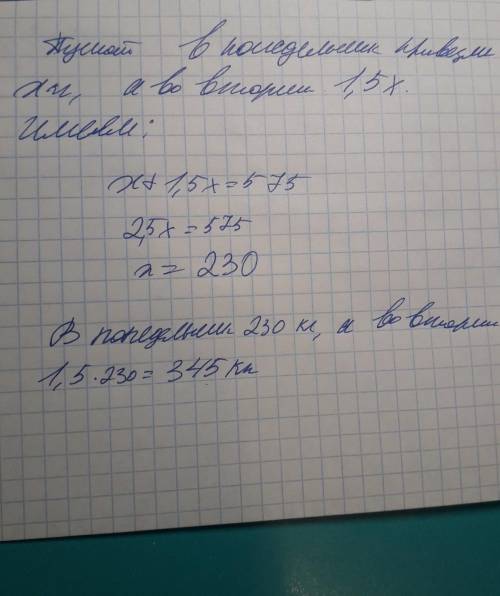 Пусть в понедельник привезли
x кг, а во вторник 1,5x.
Имеем:
x+1,5x=575
2,5x=575
x=230
В понедельник 230 кг, а во вторник
1,5·230=345 кг